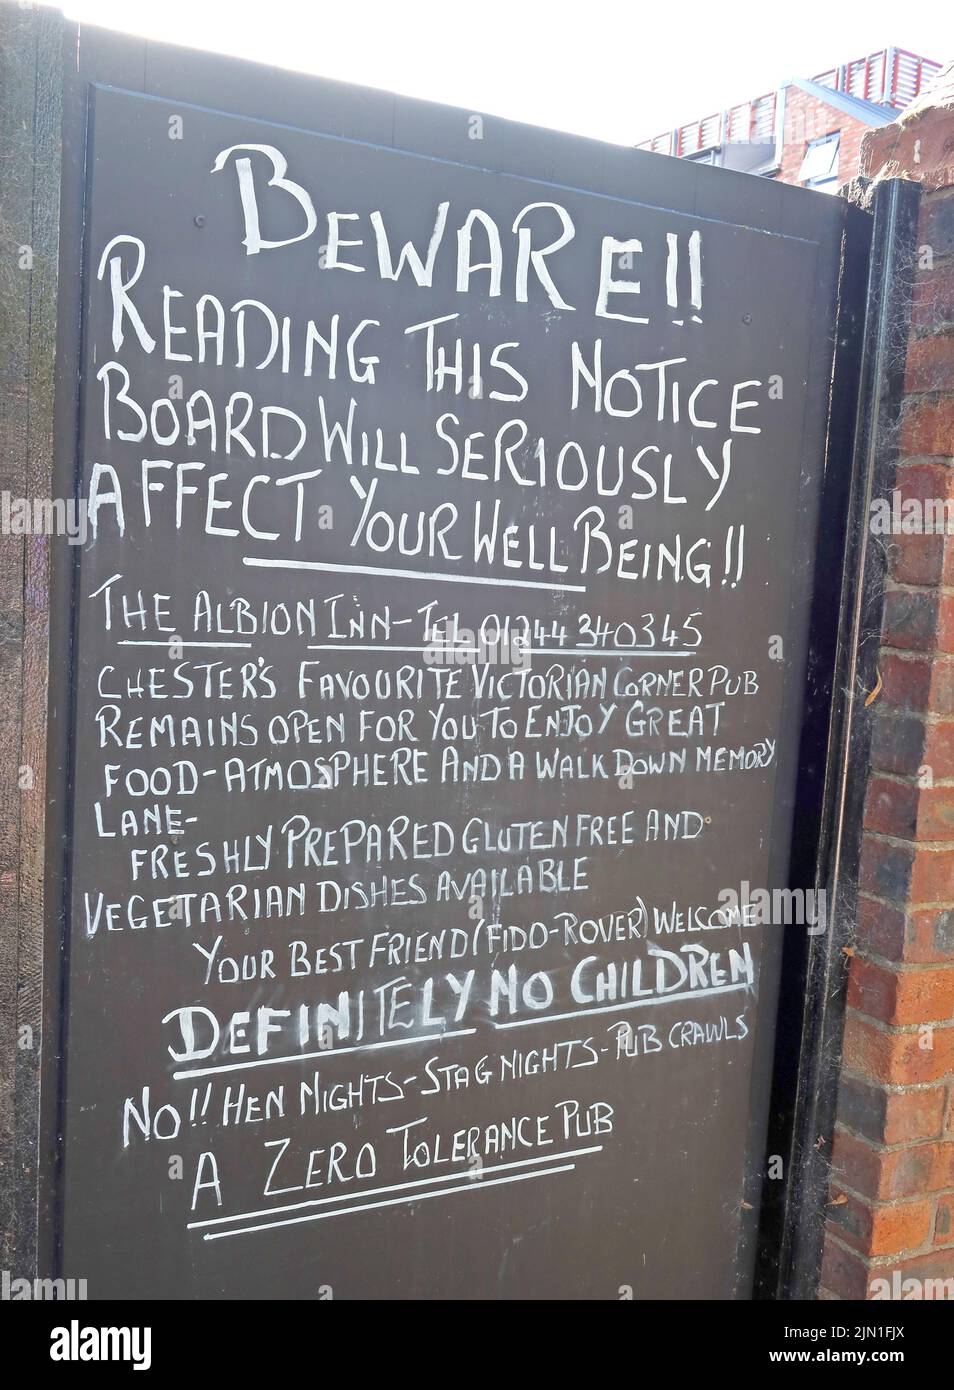 BEWARE!!
READING THIS NOTICE
BOARD WILL SERIOUSLY
AFFECT YOUR WELL BEING!!
THE ALBION INN-TEL 01244 340345
CHESTER'S FAVOURITE VICTORIAN CORNER PUB
REMAINS OPEN FOR YOU TO ENJOY GREAT
FOOD-ATMOSPHERE AND A WALK DOWN MEMORY
LANE-
FRESHLY PREPARED GLUTEN FREE AND
VEGETARIAN DISHES AVAILABLE
YOUR BEST FRIEND (FIDO-ROVER) WELCOME
DEFINITELY NO CHILDREN
NO!! HEN NIGHTS-STAG NIGHTS-PUB CRAWLS
A ZERO TOLERANCE PUB
alamy
Image ID: 2JN1FJX
www.alamy.com